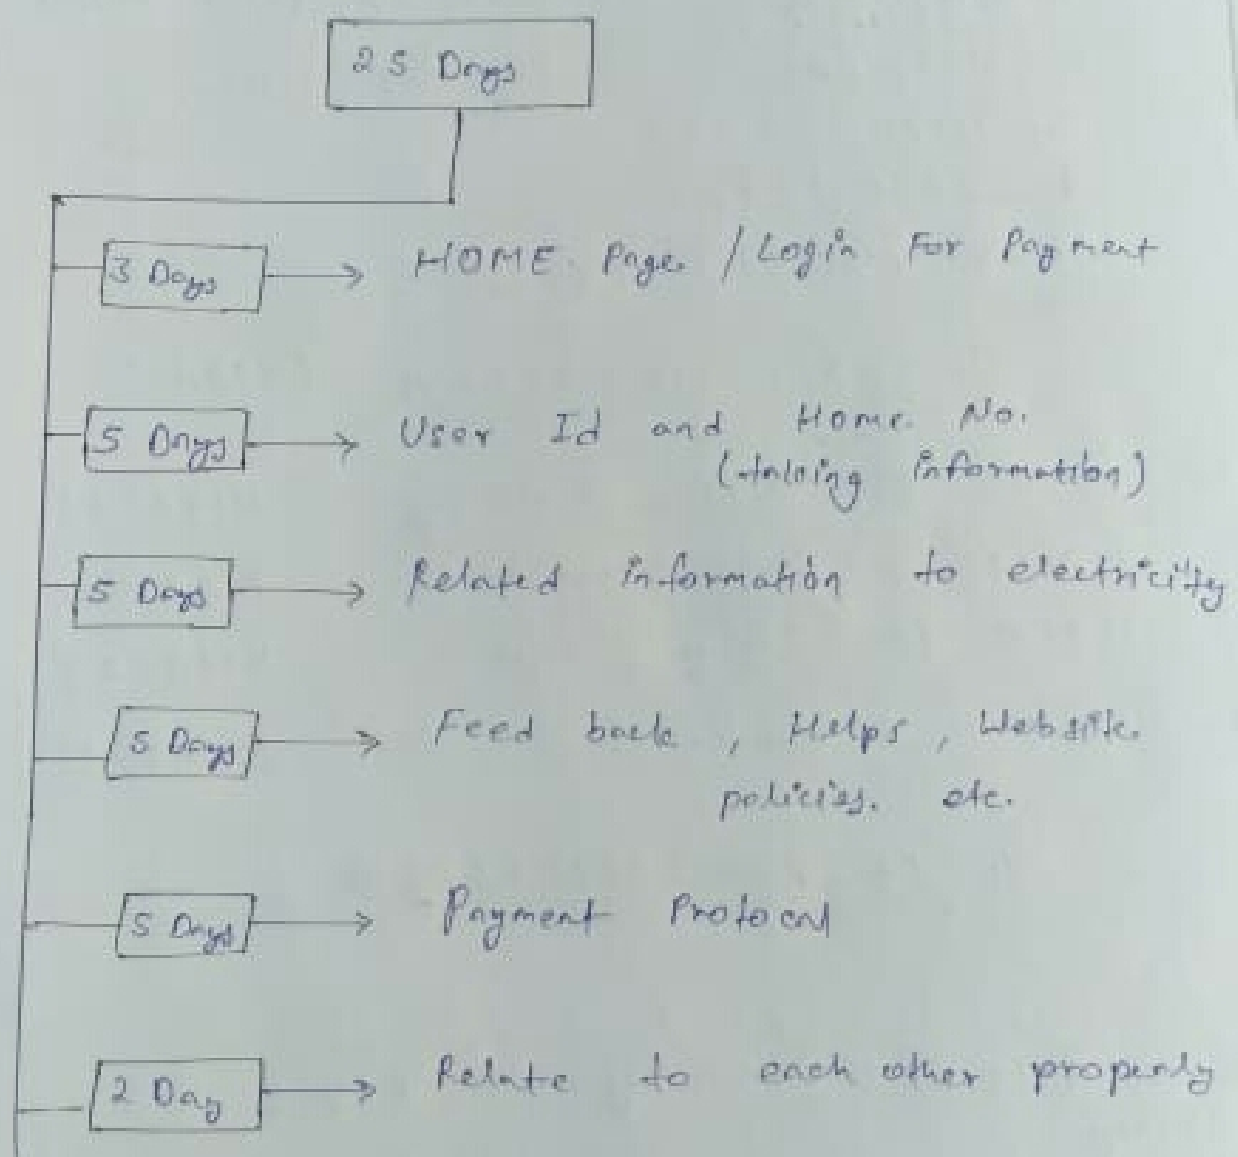 25 Days
3 Days HOME Page / Login For Payment
5 Days User Id and Home No.
(taking information)
5 Days Related information to electricity
5 Days Feed back , Helps , Website
policies. etc.
5 Days Payment Protocal
2 Day Relate to each other properly